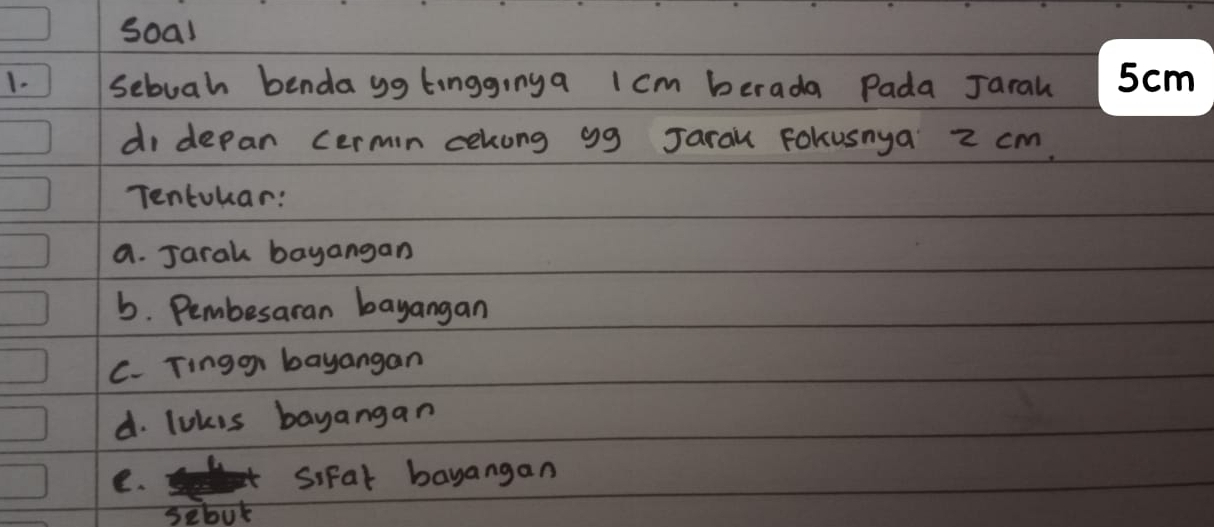 Soal
1. Sebuah benda yg tingginya 1 cm berada Pada Jarak 5cm
di depan cermin cekung yg Jarak fokusnya 2 cm.
Tentukan:
a. Jarak bayangan
b. Pembesaran bayangan
c. Tinggi bayangan
d. lukis bayangan
e. sifat bayangan
sebut